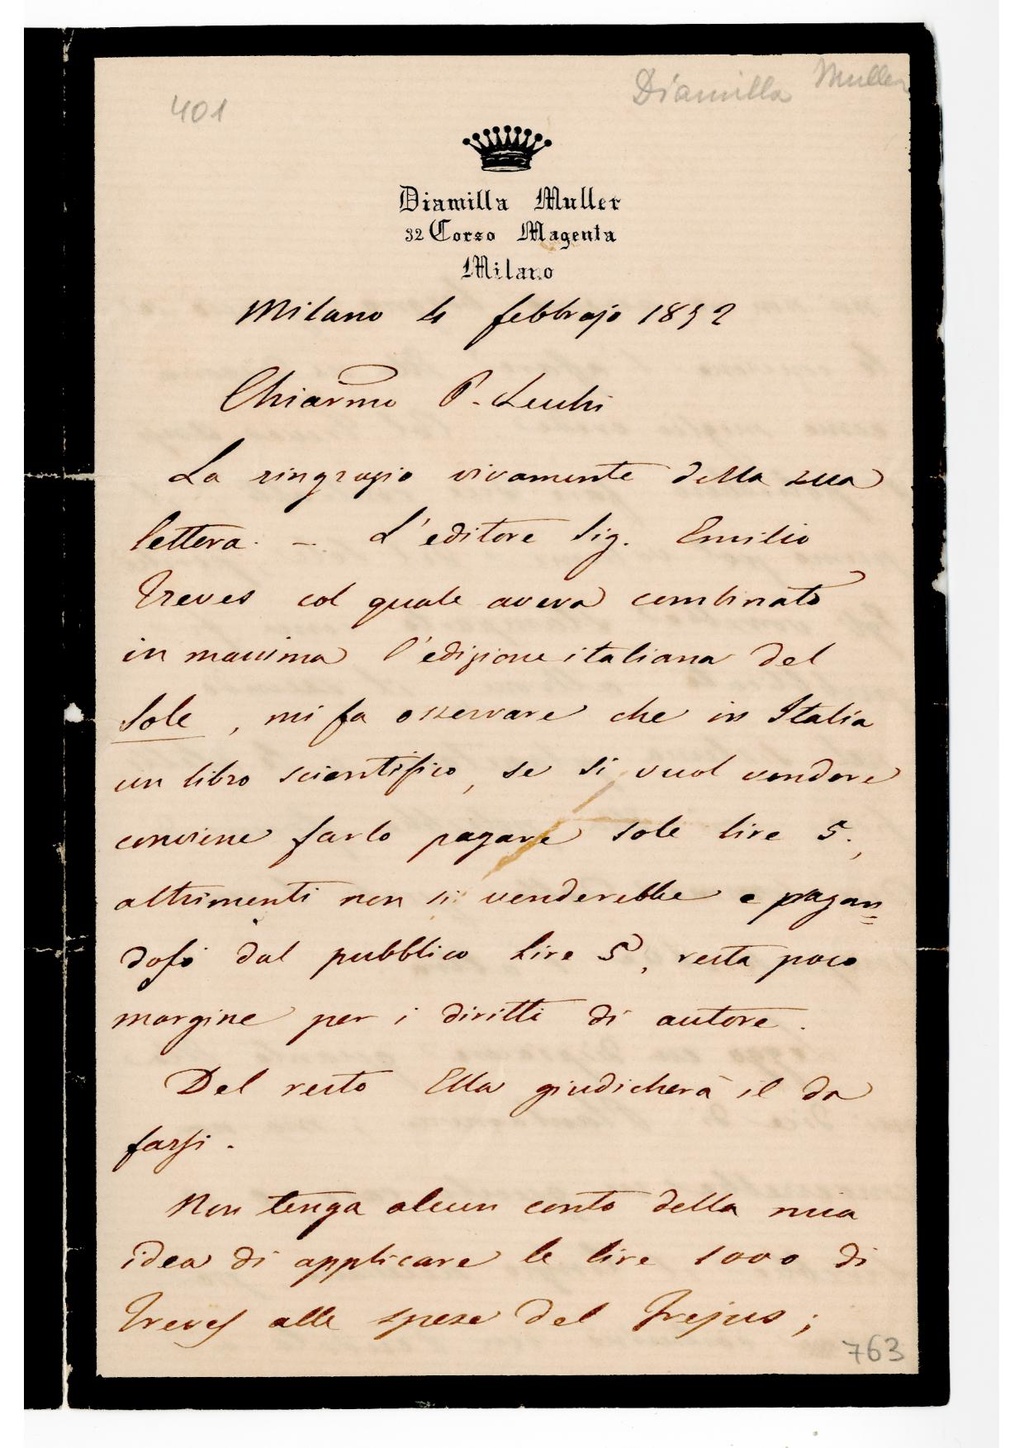 401
Diamilla Muller
Diamilla Muller
32 Corso Magenta
Milano
Milano 4 febbrajo 1872
Chiarmo P. Secchi
La ringrazio vivamente della sua
lettera. — L'editore Sig. Emilio
Treves col quale aveva combinato
in massima l'edizione italiana del
Sole, mi fa osservare che in Italia
un libro scientifico, se si vuol vendere
conviene farlo pagare sole lire 5.,
altrimenti non si venderebbe e pagan=
dosi dal pubblico lire 5, resta poco
margine per i diritti di autore.
Del resto Ella giudicherà il da
farsi.
Non tenga alcun conto della mia
idea di applicare le lire 1000 di
Treves alle spese del Frejus;
763